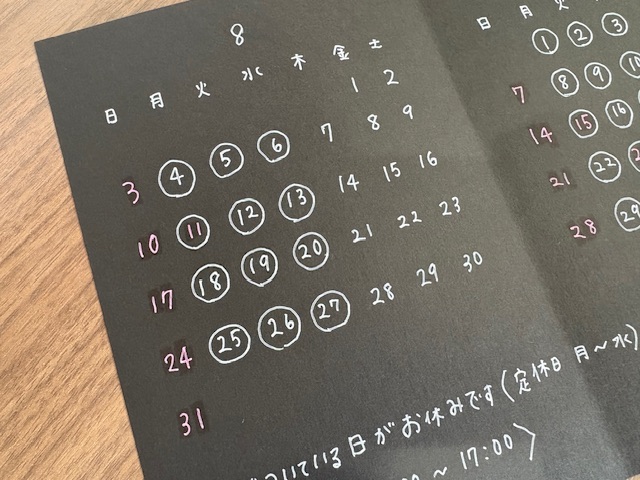 8
日 月 火 水 木 金 土
1 2
3 4 5 6 7 8 9
10 11 12 13 14 15 16
17 18 19 20 21 22 23
24 25 26 27 28 29 30
31
日 月
1 2 3
7 8 9 10
14 15 16
21 22
28 29
ついている日がお休みです(定休日 月〜水)
〜 17:00〉